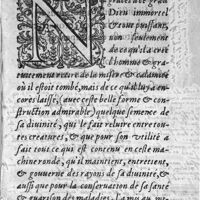 N graces de grã
Dieu immortel
& tout puissant,
non seulement
de ce qu'il a creé
l'homme & gra-
tuitement retiré de la misere & calamité
où il estoit tombé, mais de ce qu'il luy a en-
cores laissé, (avec ceste belle forme & con-
struction admirable) quelque semence de
sa divinité, qui le fait reluire entre tou-
tes creatures, & que pour son utilité a
fait tout ce qui est contenu en ceste ma-
chine ronde, qu'il maintient, entretient,
& gouverne des rayons de sa divinité, &
aussi que pour la conservation de sa santé
& guarison des maladies